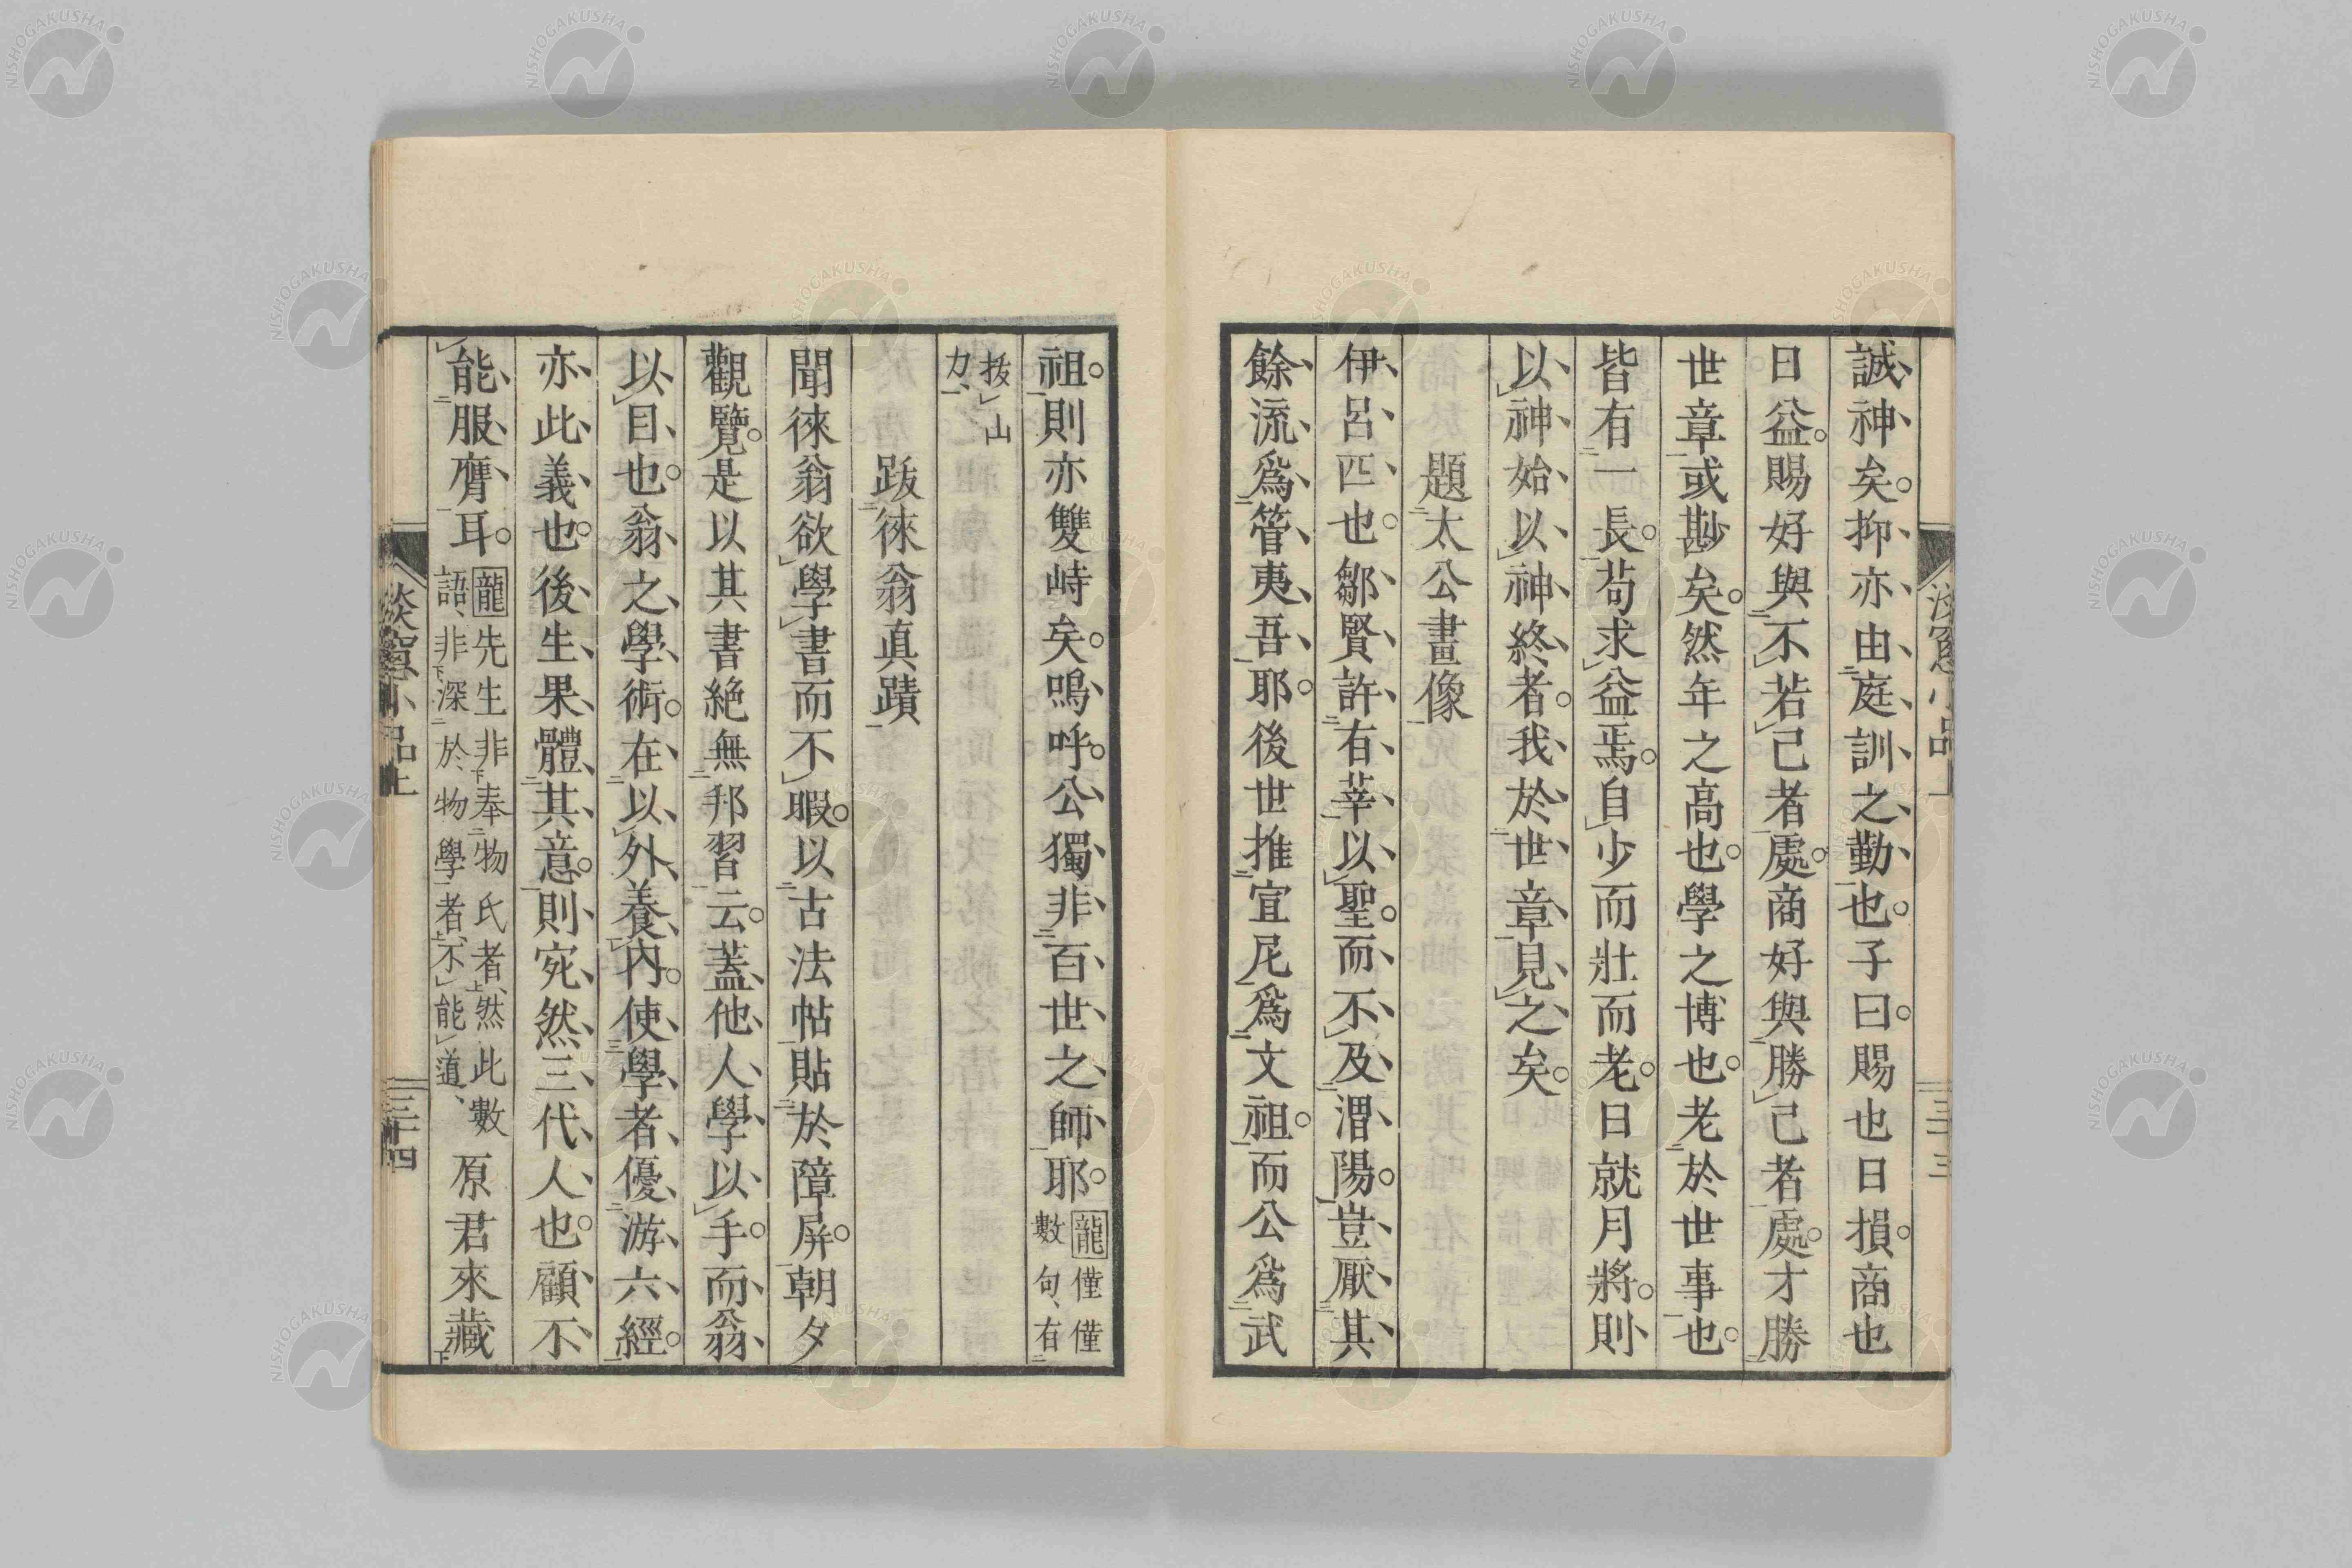 誠神矣。抑亦由庭訓之勤也。子曰。賜也日損。商也
日益。賜好與不若己者處。商好與勝己者處。才勝
世章或尠矣。然年之高也。學之博也。老於世事也。
皆有一長。苟求益焉。自少而壯而老。日就月將。則
以神始以神終者。我於世章見之矣。
題太公畫像
伊呂匹也。鄒賢許有莘以聖。而不及渭陽。豈厭其
餘流爲管夷吾耶。後世推宣尼爲文祖。而公爲武
祖。則亦雙峙矣。嗚呼。公獨非百世之師耶。龍僅僅
數句、有
拔山
力、
跋徠翁真蹟
聞徠翁欲學書而不暇。以古法帖貼於障屏。朝夕
觀覽。是以其書絶無邦習云。蓋他人學以手。而翁
以目也。翁之學術。在以外養內。使學者優游六經。
亦此義也。後生果體其意。則宛然三代人也。顧不
能服膺耳。龍先生非奉物氏者、然此數
語、非深於物學者、不能道、
原君來藏
淡窗小品上
三十四